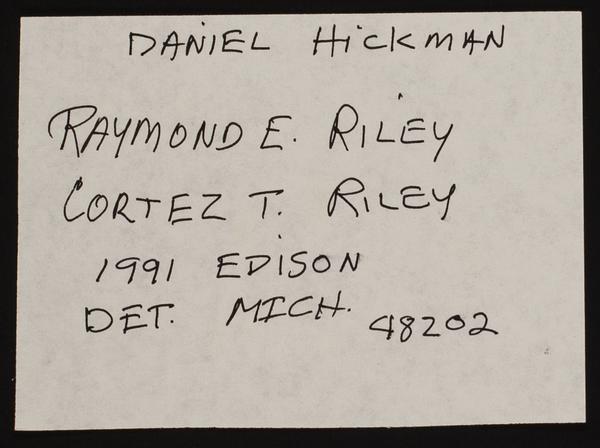 DANIEL HICKMAN
RAYMOND E. RILEY
CORTEZ T. RILEY
1991 EDISON
DET. MICH. 48202